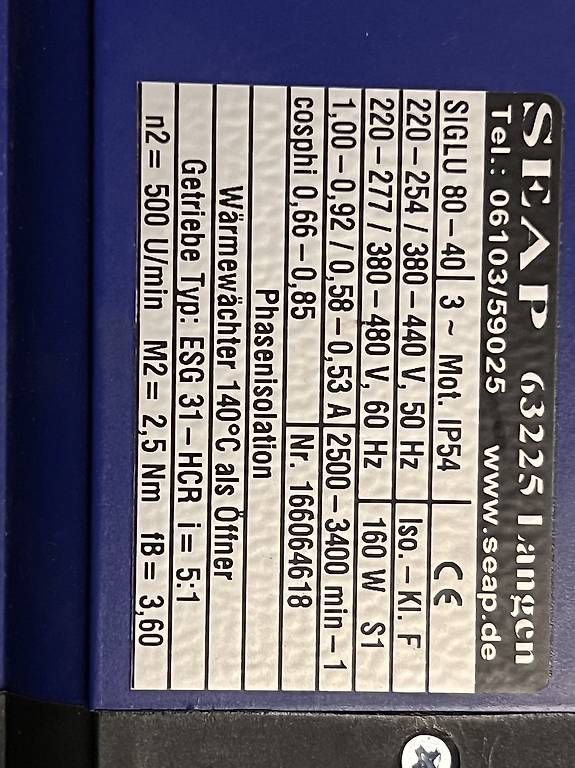 SEAP 63225 Langen
Tel.: 06103/59025 www.seap.de
SIGLU 80–40 3 ~ Mot. IP54 CE
220–254 / 380–440 V, 50 Hz Iso. – Kl. F
220–277 / 380–480 V, 60 Hz 160 W S1
1,00–0,92 / 0,58–0,53 A 2500–3400 min –1
cosphi 0,66–0,85 Nr. 166064618
Phasenisolation
Wärmewächter 140°C als Öffner
Getriebe Typ: ESG 31 – HCR i= 5:1
n2= 500 U/min M2= 2,5 Nm fB= 3,60